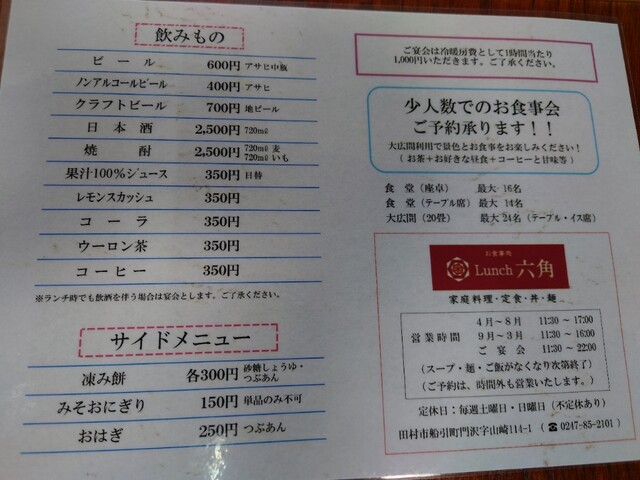 飲みもの
ビール 600円 アサヒ中瓶
ノンアルコールビール 400円 アサヒ
クラフトビール 700円 地ビール
日本酒 2,500円 720㎖
焼酎 2,500円 720㎖ 麦
720㎖ いも
果汁100%ジュース 350円 日替
レモンスカッシュ 350円
コーラ 350円
ウーロン茶 350円
コーヒー 350円
※ランチ時でも飲酒を伴う場合は宴会とします。ご了承ください。
サイドメニュー
凍み餅 各300円 砂糖しょうゆ・
つぶあん
みそおにぎり 150円 単品のみ不可
おはぎ 250円 つぶあん
ご宴会は冷暖房費として1時間当たり
1,000円いただきます。ご了承ください。
少人数でのお食事会
ご予約承ります！！
大広間利用で景色とお食事をお楽しみください！
（お茶＋お好きな昼食＋コーヒーと甘味等）
食堂（座卓） 最大 16名
食堂（テーブル席） 最大 14名
大広間（20畳） 最大 24名（テーブル・イス席）
お食事処
Lunch 六角
家庭料理・定食・丼・麺
営業時間 4月～8月 11:30～17:00
9月～3月 11:30～16:00
ご宴会 11:30～22:00
（スープ・麺・ご飯がなくなり次第終了）
（ご予約は、時間外も営業いたします。）
定休日：毎週土曜日・日曜日（不定休あり）
田村市船引町門沢字山崎114-1（☎0247-85-2101）